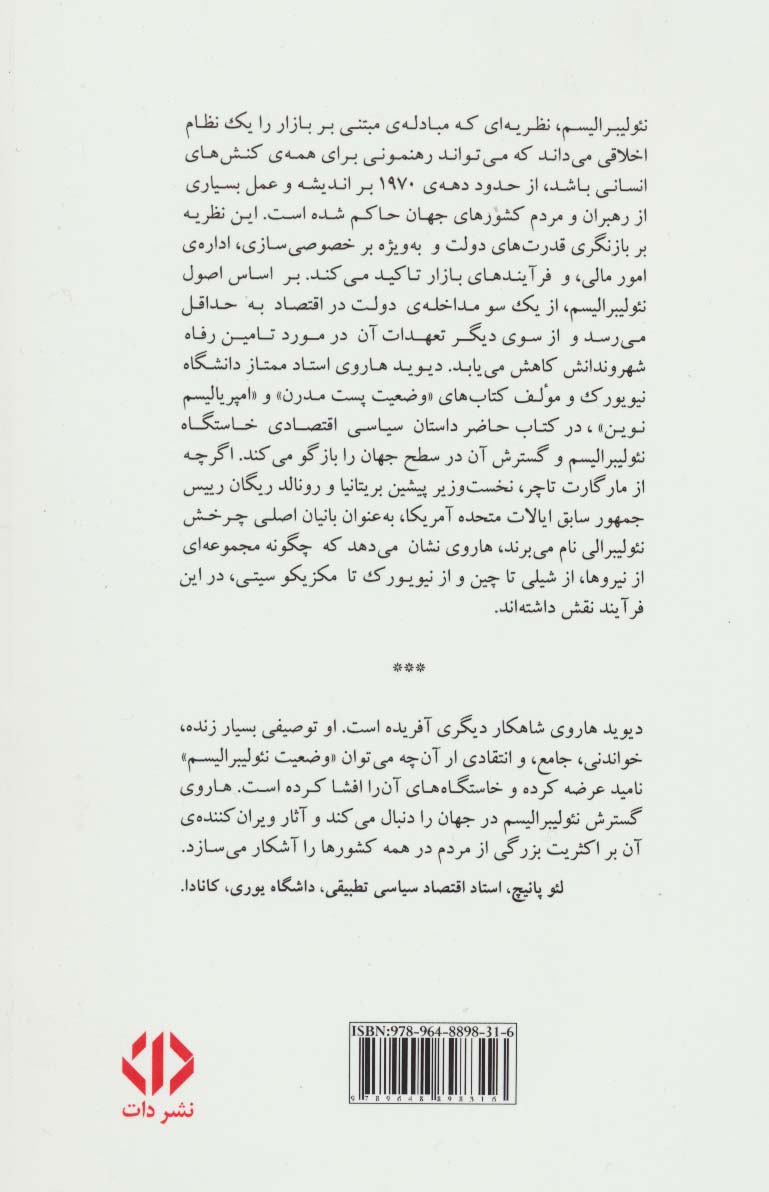 نئولیبرالیسم، نظریه‌ای که مبادله‌ی مبتنی بر بازار را یک نظام
اخلاقی می‌داند که می‌تواند رهنمونی برای همه‌ی کنش‌های
انسانی باشد، از حدود دهه‌ی ۱۹۷۰ بر اندیشه و عمل بسیاری
از رهبران و مردم کشورهای جهان حاکم شده است. این نظریه
بر بازنگری قدرت‌های دولت و به‌ویژه بر خصوصی‌سازی، اداره‌ی
امور مالی، و فرآیندهای بازار تاکید می‌کند. بر اساس اصول
نئولیبرالیسم، از یک سو مداخله‌ی دولت در اقتصاد به حداقل
می‌رسد و از سوی دیگر تعهدات آن در مورد تامین رفاه
شهروندانش کاهش می‌یابد. دیوید هاروی استاد ممتاز دانشگاه
نیویورک و مؤلف کتاب‌های «وضعیت پست مدرن» و «امپریالیسم
نوین»، در کتاب حاضر داستان سیاسی اقتصادی خاستگاه
نئولیبرالیسم و گسترش آن در سطح جهان را بازگو می‌کند. اگرچه
از مارگارت تاچر، نخست‌وزیر پیشین بریتانیا و رونالد ریگان رییس
جمهور سابق ایالات متحده آمریکا، به‌عنوان بانیان اصلی چرخش
نئولیبرالی نام می‌برند، هاروی نشان می‌دهد که چگونه مجموعه‌ای
از نیروها، از شیلی تا چین و از نیویورک تا مکزیکو سیتی، در این
فرآیند نقش داشته‌اند.
***
دیوید هاروی شاهکار دیگری آفریده است. او توصیفی بسیار زنده،
خواندنی، جامع، و انتقادی ار آن‌چه می‌توان «وضعیت نئولیبرالیسم»
نامید عرضه کرده و خاستگاه‌های آن‌را افشا کرده است. هاروی
گسترش نئولیبرالیسم در جهان را دنبال می‌کند و آثار ویران‌کننده‌ی
آن بر اکثریت بزرگی از مردم در همه کشورها را آشکار می‌سازد.
لئو پانیچ، استاد اقتصاد سیاسی تطبیقی، داشگاه یوری، کانادا.
ISBN:978-964-8898-31-6
9 789648 898316
دات
نشر دات